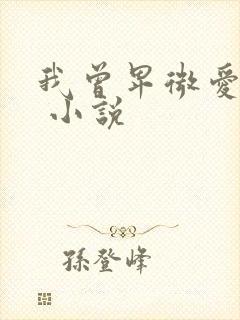 我曾卑微愛
小說
孫登峰